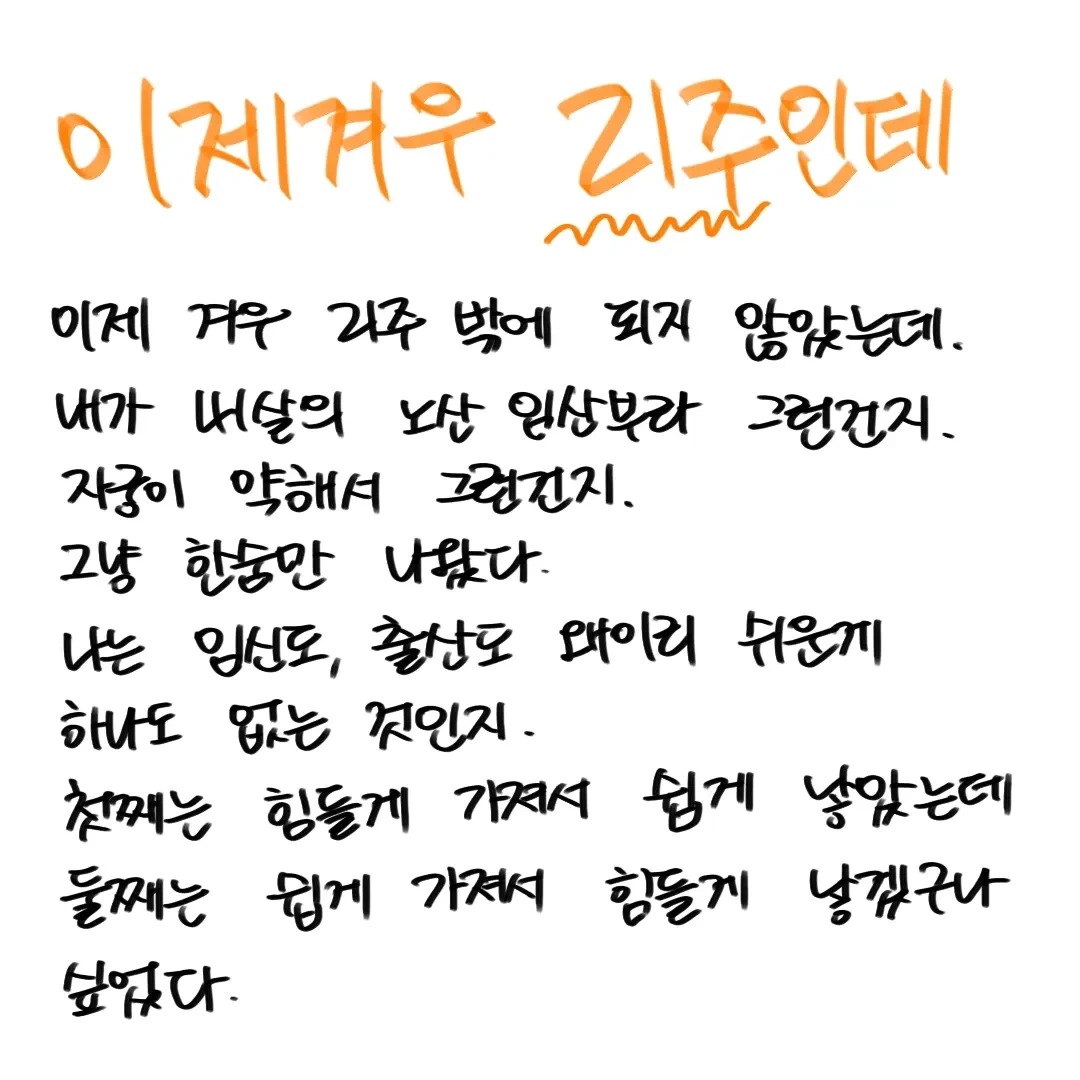 이제겨우 21주인데
이제 겨우 21주 밖에 되지 않았는데.
내가 41살의 노산 임산부라 그런건지.
자궁이 약해서 그런건지.
그냥 한숨만 나왔다.
나는 임신도, 출산도 왜이리 쉬운게
하나도 없는 것인지.
첫째는 힘들게 가져서 쉽게 낳았는데
둘째는 쉽게 가져서 힘들게 낳겠구나
싶었다.